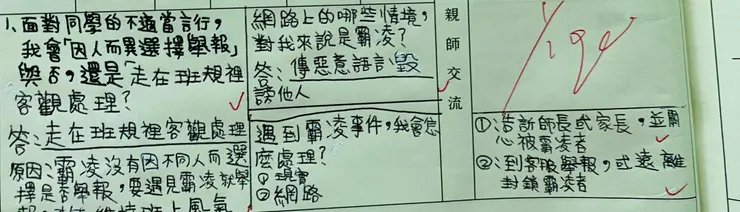 1、面對同學的不適當言行，
我會「因人而異選擇舉報」
與否，還是「走在班規裡
客觀處理？
答：走在班規裡客觀處理
原因：霸凌沒有因不同人而選
擇是否舉報，要遇見霸凌就舉
報，
維持班上風氣
網路上的哪些情境，
對我來說是霸凌？
答：傳惡意語言毀
謗他人
遇到霸凌事件，我會怎
麼處理？
①現實
②網路
親
師
交
流
①告訴師長或家長，並關
心被霸凌者
②到客服舉報，或遠離
封鎖霸凌者